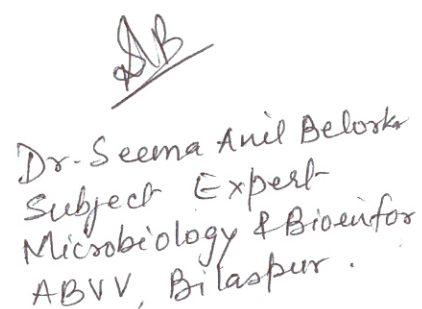 SAB
Dr. Seema Anil Belorkar
Subject Expert
Microbiology & Bioinfor
ABVV, Bilaspur.